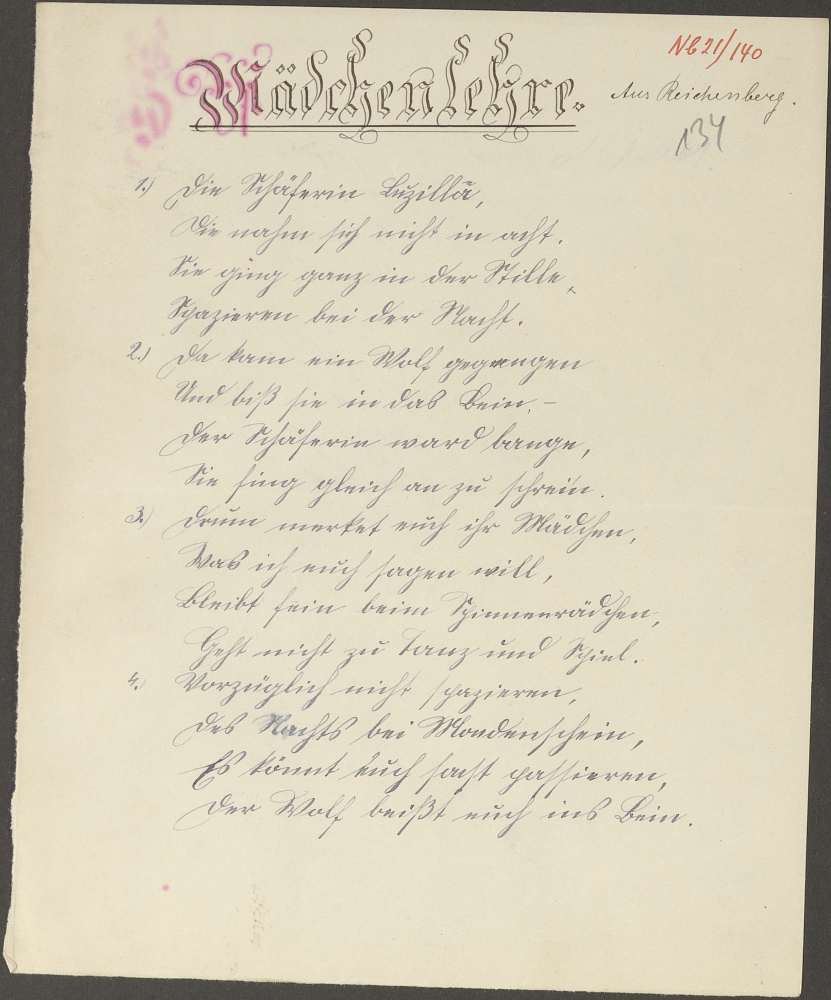 Mädchenlehre.
NB 21/140
Aus Reichenberg.
134
1.) Die Schäferin Luzilla,
Die nahm sich nicht in acht.
Sie ging ganz in der Stille,
Spazieren bei der Nacht.
2.) Da kam ein Wolf gegangen
Und biß sie in das Bein. –
Der Schäferin ward bange,
Sie fing gleich an zu schrein.
3.) Drum merket euch ihr Mädchen,
Was ich euch sagen will,
Bleibt fein beim Spinnenrädchen,
Geht nicht zu Tanz und Spiel.
4.) Vorzüglich nicht spazieren,
Des Nachts bei Mondenschein,
Es könnt euch sonst passieren,
Der Wolf beißt euch ins Bein.